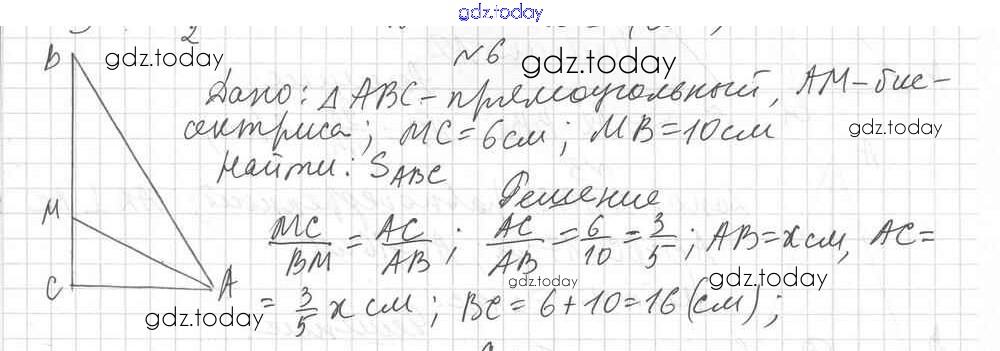 gdz.today
№6
B gdz.today gdz.today
Дано: △ABC - прямоугольный, AM - бис-
сектриса; MC = 6 см; MB = 10 см gdz.today
Найти: S_ABC
Решение
M MC/BM = AC/AB; AC/AB = 6/10 = 3/5; AB = x см, AC =
C A gdz.today gdz.today
= 3/5 x см; BC = 6 + 10 = 16 (см);
gdz.today